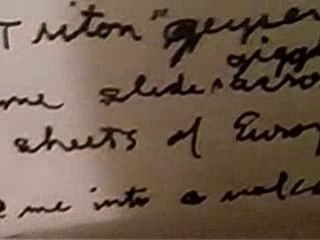 Triton "geyser
giggl
me slide across
sheets of Europ
me into a volca